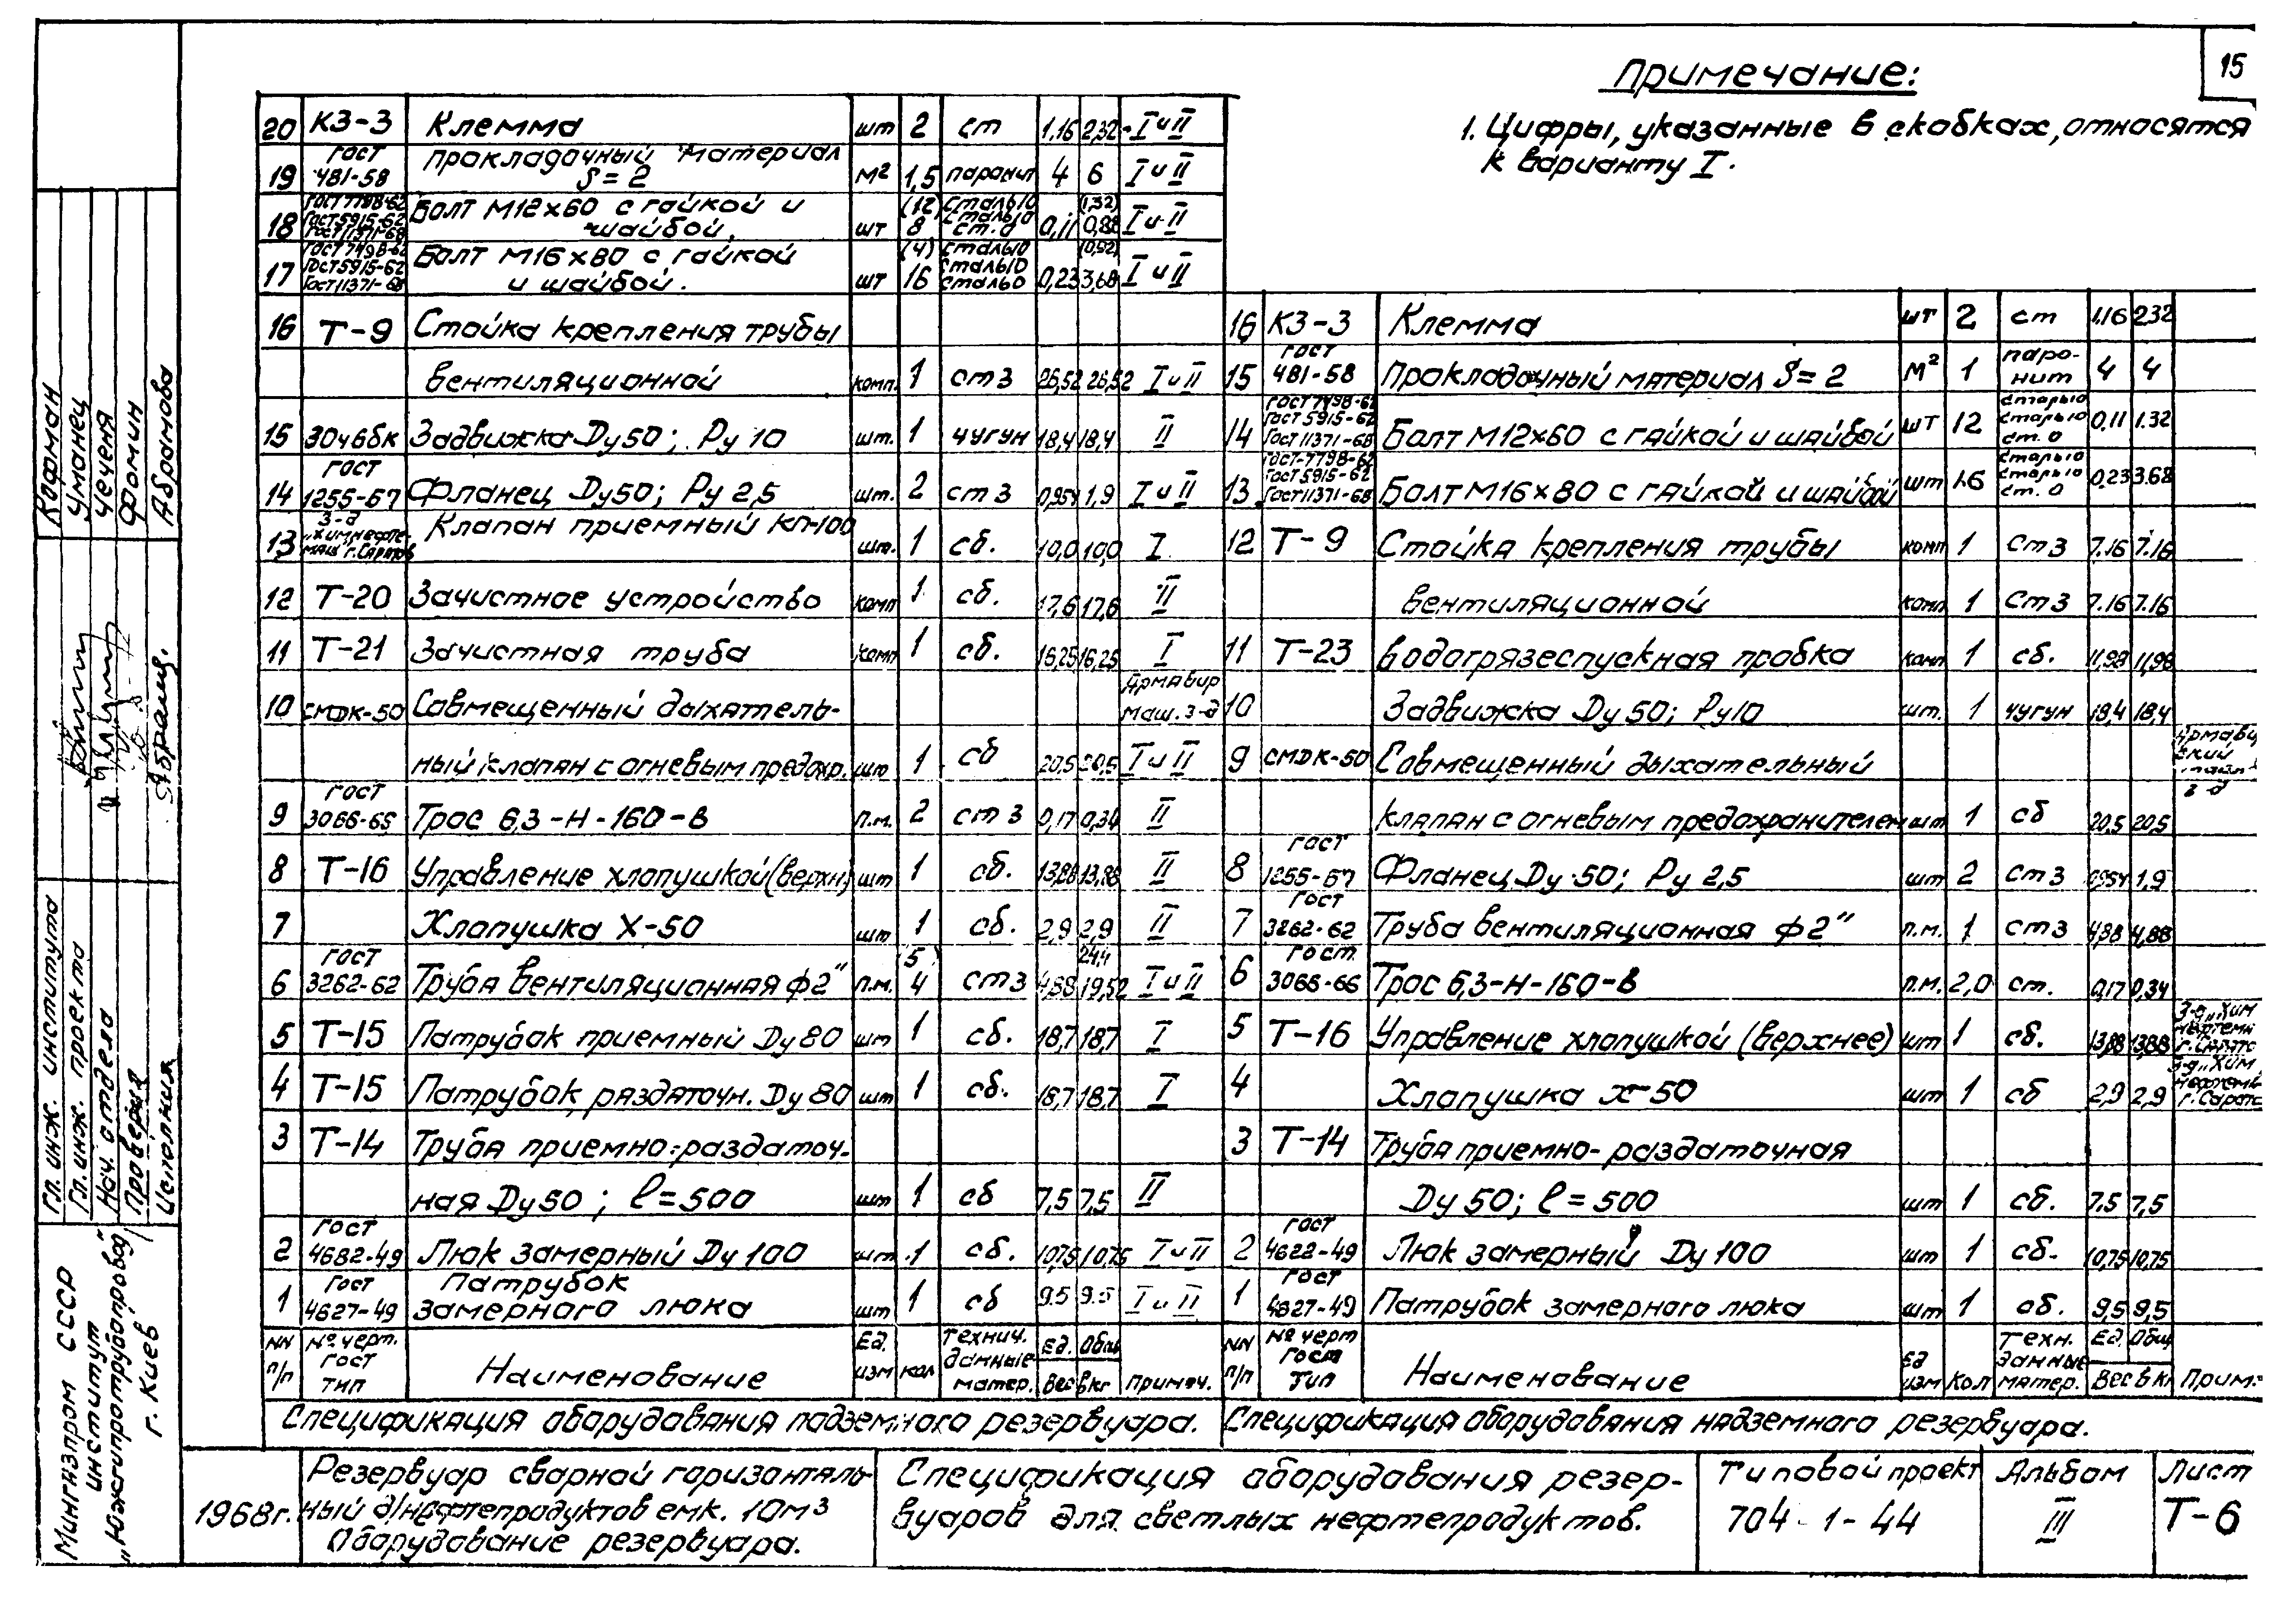 15
Примечание:
1. Цифры, указанные в скобках, относятся
к варианту I.
20 КЗ-3 Клемма шт 2 ст 1,16 2,32 I и II
19 ГОСТ 481-58 Прокладочный материал S=2 м² 1,5 паронит 4 6 I и II
18 ГОСТ 7798-62 ГОСТ 5915-62 ГОСТ 11371-68 Болт М12х60 с гайкой и шайбой. шт (12) 8 сталь10 сталь10 ст.0 0,11 (1,32) 0,88 I и II
17 ГОСТ 7798-62 ГОСТ 5915-62 ГОСТ 11371-68 Болт М16х80 с гайкой и шайбой. шт (4) 16 сталь10 сталь10 сталь0 0,23 (0,92) 3,68 I и II
16 Т-9 Стойка крепления трубы
вентиляционной комп. 1 ст 3 26,52 26,52 I и II
15 30ч6бк Задвижка Ду50; Ру 10 шт. 1 чугун 18,4 18,4 II
14 ГОСТ 1255-67 Фланец Ду50; Ру 2,5 шт. 2 ст 3 0,954 1,9 I и II
13 З-д „Химнефте-маш" г. Саратов Клапан приемный КП-100 шт. 1 сб. 10,0 10,0 I
12 Т-20 Зачистное устройство комп 1 сб. 17,6 17,6 II
11 Т-21 Зачистная труба комп 1 сб. 16,25 16,25 I
10 СМДК-50 Совмещенный дыхатель- Армавир маш. з-д
ный клапан с огневым предохр. шт 1 сб 20,5 20,5 I и II
9 ГОСТ 3066-66 Трос 6,3-Н-160-В п.м. 2 ст 3 0,17 0,34 II
8 Т-16 Управление хлопушкой (верхн.) шт 1 сб. 13,88 13,88 II
7 Хлопушка Х-50 шт 1 сб. 2,9 2,9 II
6 ГОСТ 3262-62 Труба вентиляционная ф2" п.м. 5 4 ст 3 4,88 24,4 19,52 I и II
5 Т-15 Патрубок приемный Ду 80 шт 1 сб. 18,7 18,7 I
4 Т-15 Патрубок раздаточн. Ду 80 шт 1 сб. 18,7 18,7 I
3 Т-14 Труба приемно-раздаточ-
ная Ду 50; l=500 шт 1 сб 7,5 7,5 II
2 ГОСТ 4682-49 Люк замерный Ду 100 шт 1 сб. 10,75 10,75 I и II
1 ГОСТ 4627-49 Патрубок замерного люка шт 1 сб 9.5 9.5 I и II
NN п/п № черт. ГОСТ тип Наименование Ед. изм кол Технич. данные матер. Ед. Общ. Вес в кг Примеч.
Спецификация оборудования подземного резервуара.
16 КЗ-3 Клемма шт 2 ст 1,16 2,32
15 ГОСТ 481-58 Прокладочный материал S=2 м² 1 паро-нит 4 4
14 ГОСТ 7798-62 ГОСТ 5915-62 ГОСТ 11371-68 Болт М12х60 с гайкой и шайбой шт 12 сталь10 сталь10 ст. 0 0,11 1.32
13 ГОСТ-7798-62 ГОСТ 5915-62 ГОСТ 11371-68 Болт М16х80 с гайкой и шайбой шт 16 сталь10 сталь10 ст. 0 0,23 3.68
12 Т-9 Стойка крепления трубы комп 1 ст 3 7.16 7.16
вентиляционной комп 1 ст 3 7.16 7.16
11 Т-23 Водогрязеспускная пробка комп 1 сб. 11,98 11,98
10 Задвижка Ду 50; Ру10 шт. 1 чугун 18,4 18,4
9 СМДК-50 Совмещенный дыхательный
клапан с огневым предохранителем шт 1 сб 20,5 20,5
8 ГОСТ 1255-67 Фланец Ду 50; Ру 2,5 шт 2 ст 3 0,954 1,9
7 ГОСТ 3262-62 Труба вентиляционная ф2" п.м. 1 ст 3 4,88 4,88
6 ГОСТ 3066-66 Трос 6,3-Н-160-В п.м. 2,0 ст. 0,17 0,34
5 Т-16 Управление хлопушкой (верхнее) шт 1 сб. 13,88 13,88 З-д „Хим
4 Хлопушка х-50 шт 1 сб 2,9 2,9 З-д „Хим
3 Т-14 Труба приемно-раздаточная
Ду 50; l=500 шт 1 сб. 7,5 7,5
2 ГОСТ 4622-49 Люк замерный Ду 100 шт 1 сб. 10,75 10,75
1 ГОСТ 4627-49 Патрубок замерного люка шт 1 сб. 9,5 9,5
NN п/п № черт ГОСТ Тип Наименование Ед изм Кол Техн. данные матер. Ед. Общ Вес в кг Прим.
Спецификация оборудования надземного резервуара.
1968г.
Резервуар сварной горизонталь-
ный д/нефтепродуктов емк. 10м3
Оборудование резервуара.
Спецификация оборудования резер-
вуаров для светлых нефтепродуктов.
Типовой проект
704-1-44
Альбом
III
Лист
Т-6
Мингазпром СССР
институт
„Южгипротрубопровод"
г. Киев
Гл. инж. института
Гл. инж. проекта
Нач. отдела
Проверил
Исполнил
Кофман
Уманец
Чеченя
Фомин
Абрамова